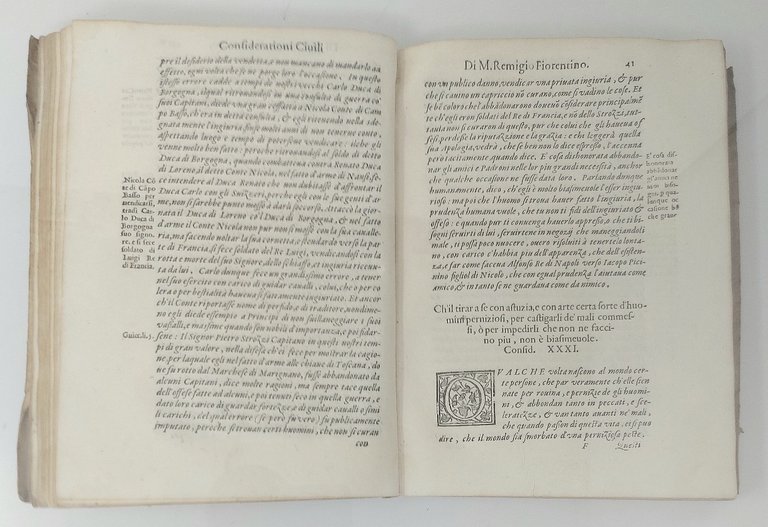 Considerationi Ciuili
pre il desiderio della vendetta, e non mancano di mandarlo ad
effetto, ogni volta che se ne porge loro l'occasione. In questo
istesso errore cadde a tempi de nostri vecchi Carlo Duca di
Borgogna, il qual ritrouandosi in vna consulta di guerra co'
suoi Capitani, diede vna gran ceffata a Nicola Conte di Cam
po Basso, ch'era in detta consulta, & egli ritenendo nella sdegnata
mente l'ingiuria, finse molti anni di non tenerne conto,
aspettando luogo e tempo di potersene vendicare: il che gli
venne molto ben fatto: perche ritrouandosi al soldo di detto
Duca di Borgogna, quando combatteua contra Renato Duca
di Loreno, il detto Conte Nicola, nel fatto d'arme di Nansì, fece
intendere al Duca Renato che non dubitasse d'affrontar il
Duca Carlo con gli Suizzeri, perche egli con le sue genti d'arme,
non si sarebbe punto mosso à darli soccorso. Attaccò la giornata
il Duca di Loreno co'l Duca di Borgogna, e nel fatto d'arme
il Conte Nicola non pur non si mosse con la sua caualleria,
ma facendo voltar la sua cornetta, e stendardo verso la parte
di Francia, si fece soldato del Re Luigi, vendicandosi con la
rotta e morte del suo Signore, dello schiaffo, et ingiuria riceuuta
da lui. Carlo dunque fece vn grandissimo errore, a tener
nel suo esercito con carico di guidar caualli, colui, che o per colera
o per bestialità haueua sì fattamente ingiuriato. Et ancor
ch'il Conte riportasse nome di perfido, e di traditore, nondimeno
egli diede essempio a Principi di non suillaneggiare i suoi
vassalli, e massime quando son nobili d'importanza, e posson
Nicola Cõ
te di Cãpo
Basso per
vendicarsi,
tradì Carlo
Duca di
Borgogna
suo signore.
e si fece
soldato di
Luigi Re
di Francia.
Guicc. li. 5.
sene: Il Signor Pietro Strozzi Capitano in questi nostri tempi
di gran valore, nella difesa ch'ei fece per mostrar la cagione,
per laquale egli nel fatto d'arme alle chiane di Toscana, doue
fu rotto dal Marchese di Marignano, fusse abbandonato da
alcuni Capitani, dice molte ragioni, ma sempre tace quella
dell'offese fatte ad alcuni, e poi tenuti seco in quella guerra, e
dato loro carico di guardar fortezze, o di guidar caualli o simili
carichi, del qual errore (se però fu vero) fu publicamente
imputato, peroche si trouan certi huomini, che non si curan
con
Di M. Remigio Fiorentino. 41
con vn publico danno, vendicar vna priuata ingiuria, & pur
che si cauino vn capriccio nõ curano, come si vadino le cose. Et
se bẽ coloro che l'abbãdonarono doueuã cõsiderare principalmẽ
te ch'egli eron soldati del Re di Francia, e nõ dello Strozzi, tuttauia
non si curaron di questo, pur che colui che gli haueua offesi,
perdesse la riputazione e la grazia: e chi leggerà quella
sua Apologia, vedrà, che se ben non lo dice espresso, l'accenna
pero tacitamente quando dice. E' cosa dishonorata abbandonar
gli amici e Padroni nelle lor più grandi necessità, ancor
che qualche occasione ne fusse data loro. Parlando dunque
humanamente, dico, ch'egli è molto biasmeuole l'esser ingiurioso:
ma poi che l'huomo si troua hauer fatto l'ingiuria, la
prudenza humana vuole, che tu non ti fidi dell'ingiuriato &
offeso: e quando pur ti conuenga hauerlo appresso, e che ti bisogni
seruirti di lui, seruirtene in negozij che maneggiandoli
male, ti possa poco nuocere, ouero risoluiti à tenerlo lontano,
con carico c'habbia più dell'apparenza, che dell'esistenza,
e far come faceua Alfonso Re di Napoli verso Iacopo Piccinino
figliol di Nicolo, che con egual prudenza l'aiutaua come
amico, & in tanto se ne guardana come da nimico.
E' cosa dishonorata
abbãdonar
gl'amici ne
lor bisogni,
per qualunque
occasione
che
siane
Ch'il tirar a se con astuzia, e con arte certa sorte d'huomini
perniziosi, per castigarli de' mali commessi,
ò per impedirli che non ne faccino
piu, non è biasimeuole.
Consid. XXXI.
QVALCHE volta nascono al mondo certe
persone, che par veramente ch'elle sien
nate per rouina, e pernizie de gli huomini,
& abbondan tanto in peccati, e scelleratezze,
& van tanto auanti ne' mali,
che quando passon di questa vita, et si può
dire, che il mondo sia smorbato d'vna perniziosa peste.
F Questi